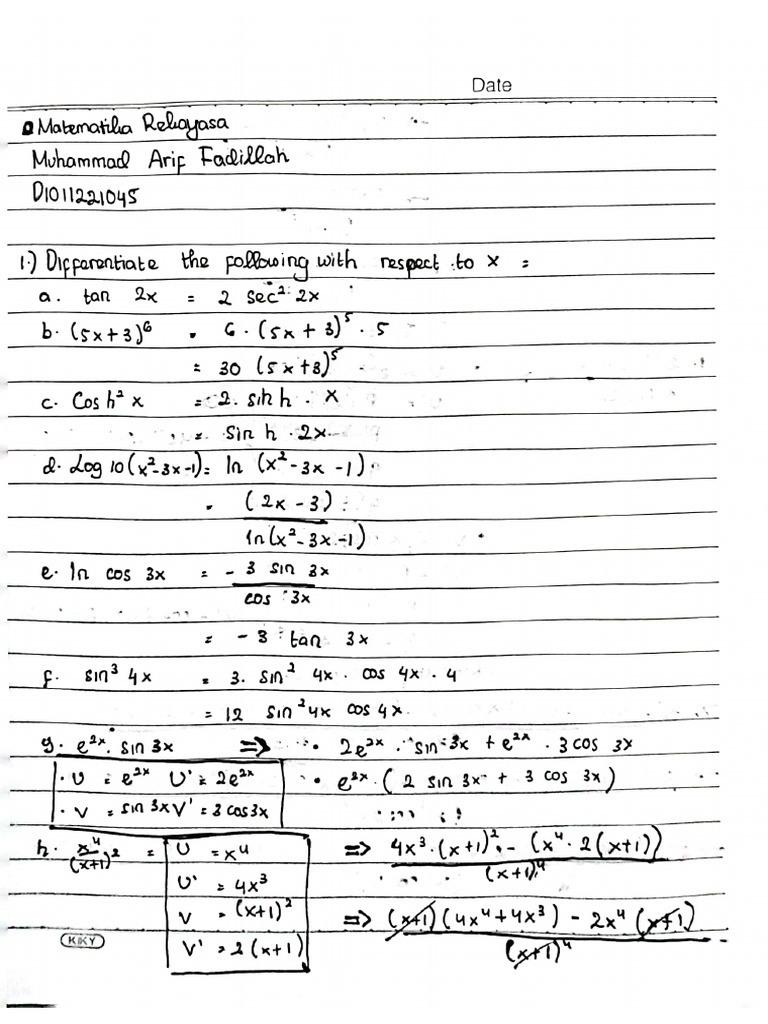 Date
Matematika Rekayasa
Muhammad Arif Fadillah
D1011221045
1.) Differentiate the following with respect to x :
a. tan 2x = 2 sec² 2x
b. (5x+3)⁶ = 6 · (5x + 3)⁵ · 5
= 30 (5x+3)⁵
c. Cos h² x = 2. sin h . x
= sin h . 2x
d. Log 10 (x²-3x-1) = ln (x² - 3x - 1)
= (2x - 3)
ln (x² - 3x - 1)
e. ln cos 3x = - 3 sin 3x
cos 3x
= - 3 tan 3x
f. sin³ 4x = 3. sin² 4x . cos 4x . 4
= 12 sin² 4x cos 4x
g. e²ˣ. sin 3x => · 2e²ˣ . sin 3x + e²ˣ . 3 cos 3x
· U = e²ˣ U' = 2e²ˣ · e²ˣ . ( 2 sin 3x + 3 cos 3x )
· V = sin 3x V' = 3 cos 3x
h. x⁴/(x+1)² = U = x⁴ => 4x³ . (x+1)² - (x⁴ . 2(x+1))
(x+1)⁴
U' = 4x³
V = (x+1)² => (x+1) (4x⁴ + 4x³) - 2x⁴ (x+1)
V' = 2 (x+1) (x+1)⁴
KIKY